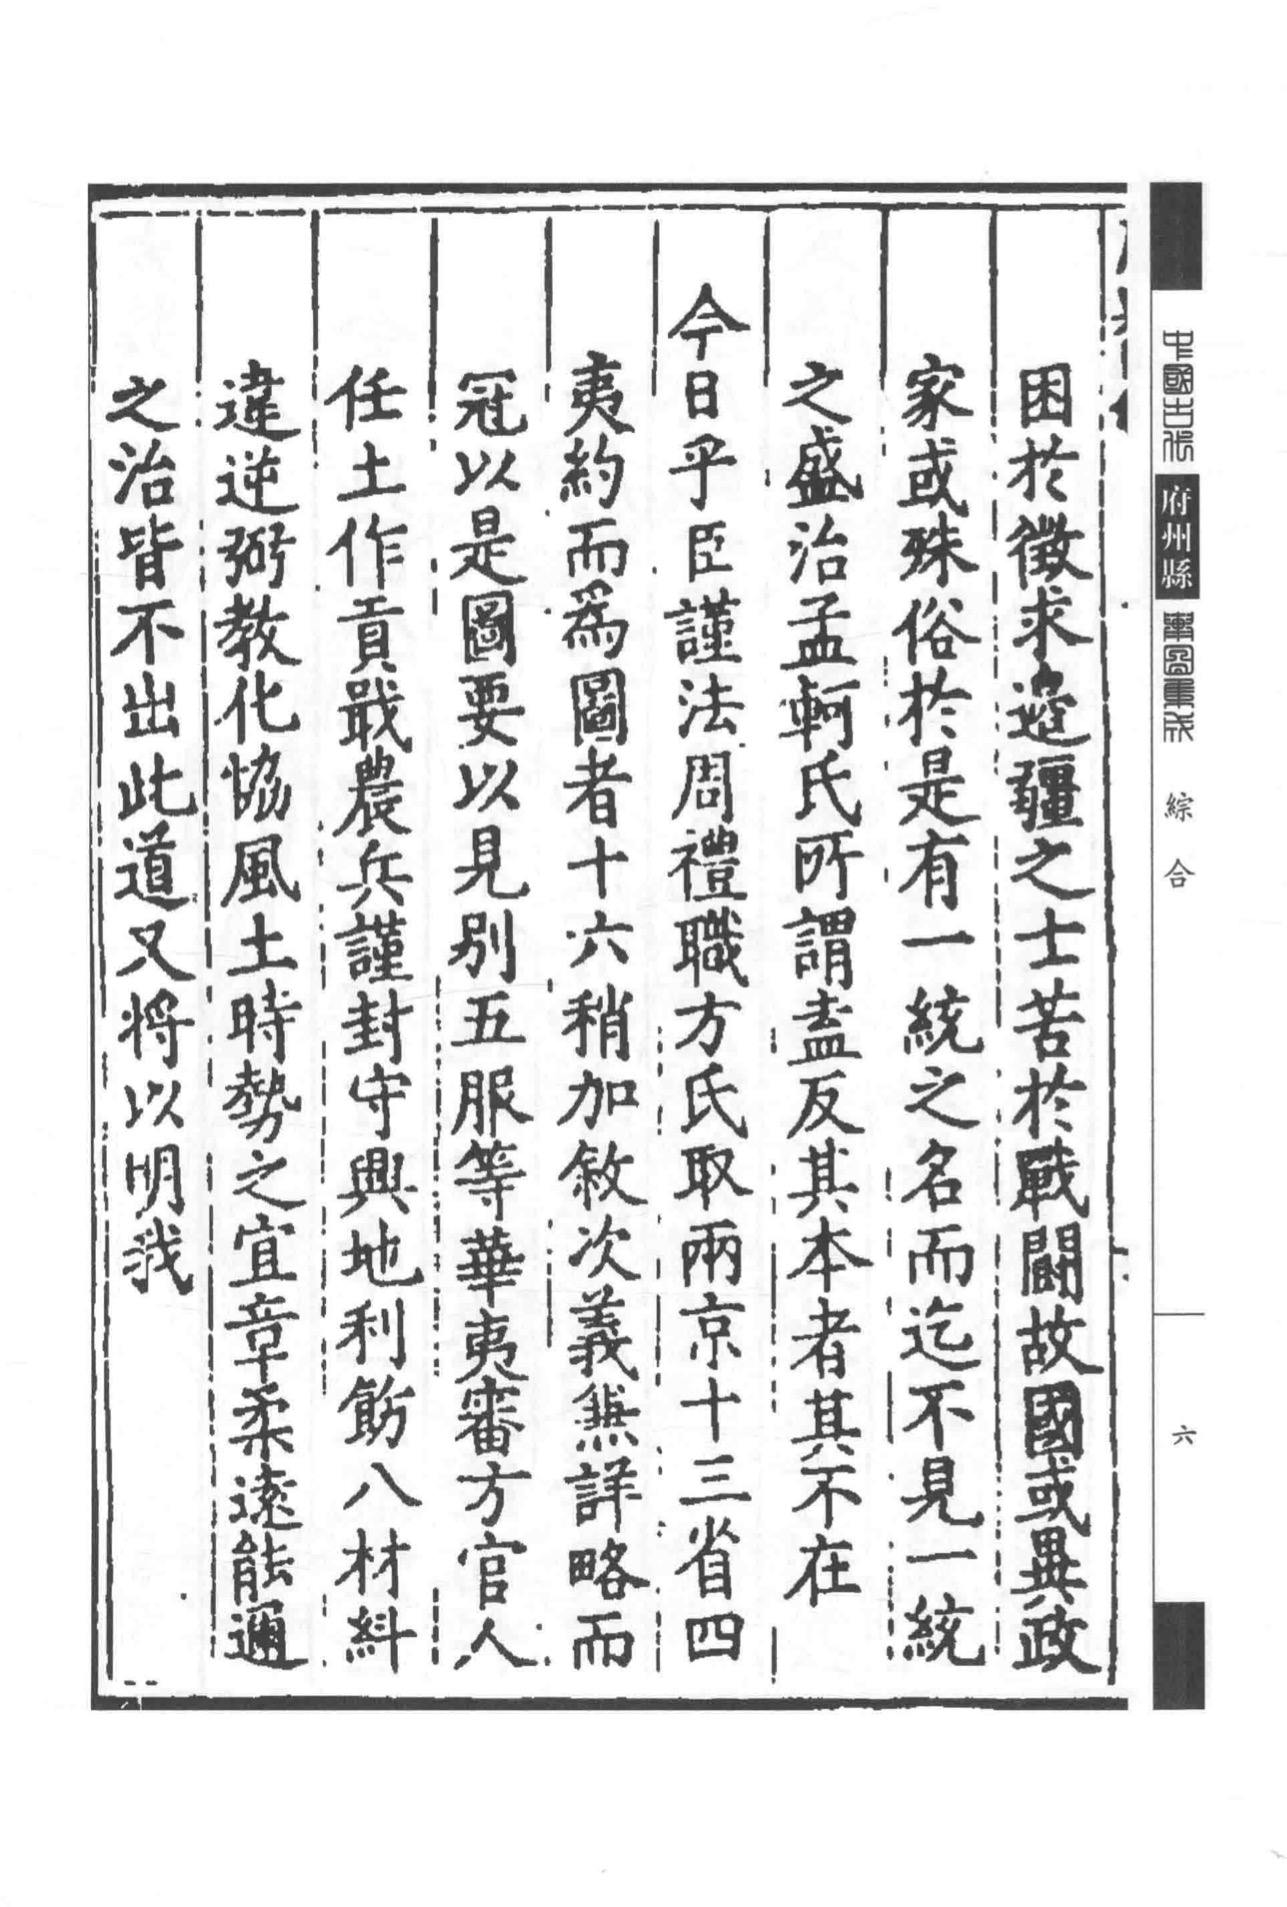 困於徵求邉疆之士苦於戰鬪故國或異政
家或殊俗於是有一統之名而迄不見一統
之盛治孟軻氏所謂盍反其本者其不在
今日乎臣謹法周禮職方氏取兩京十三省四
夷約而為圖者十六稍加敘次義無詳略而
冠以是圖要以見別五服等華夷審方官人
任土作貢戢農兵謹封守興地利飭八材糾
違逆弼教化恊風土時勢之宜章柔逺能邇
之治皆不出此道又将以明我
中國古代
府州縣
輿圖集成
綜合
六